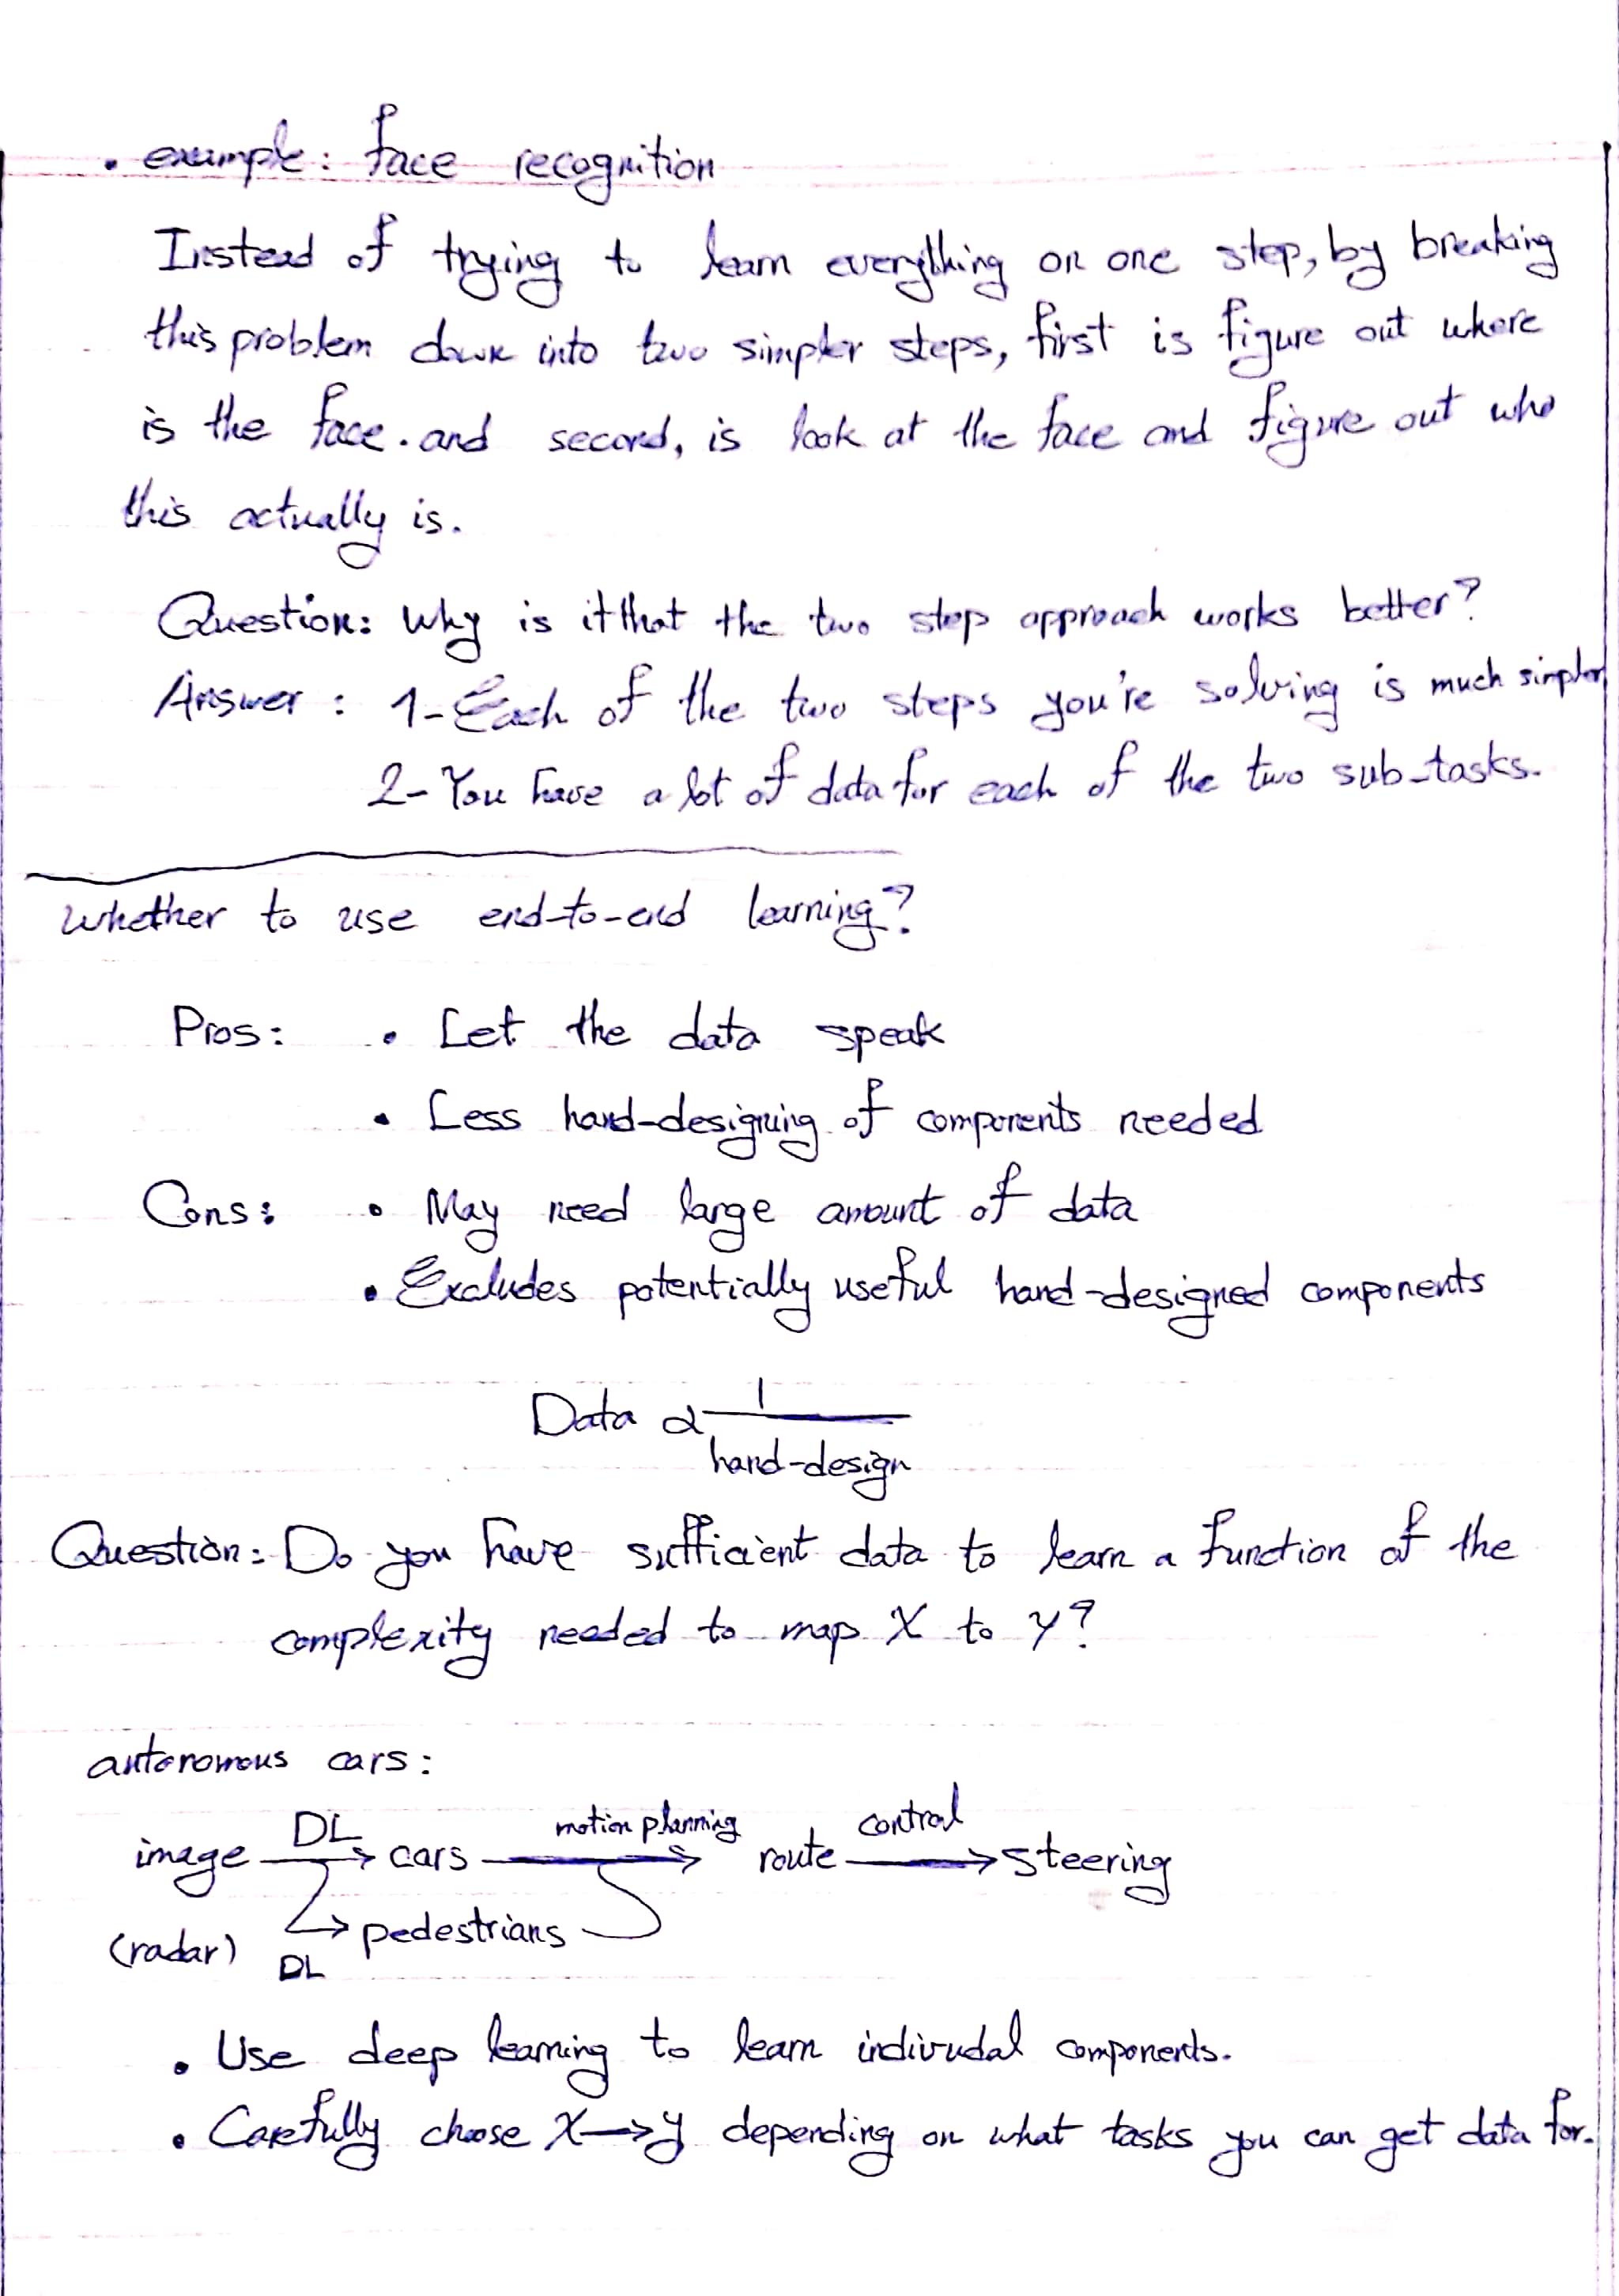 • example: face recognition
Instead of trying to learn everything on one step, by breaking
this problem down into two simpler steps, first is figure out where
is the face. and second, is look at the face and figure out who
this actually is.
Question: Why is it that the two step approach works better?
Answer: 1- Each of the two steps you're solving is much simpler
2- You have a lot of data for each of the two sub-tasks.
Whether to use end-to-end learning?
Pros: • Let the data speak
• Less hand-designing of components needed
Cons: • May need large amount of data
• Excludes potentially useful hand-designed components
Data α 1
hand-design
Question: Do you have sufficient data to learn a function of the
complexity needed to map X to Y?
autonomous cars:
image DL → cars motion planning → route control → steering
(radar) DL → pedestrians
• Use deep learning to learn indivudal components.
• Carefully choose X → y depending on what tasks you can get data for.